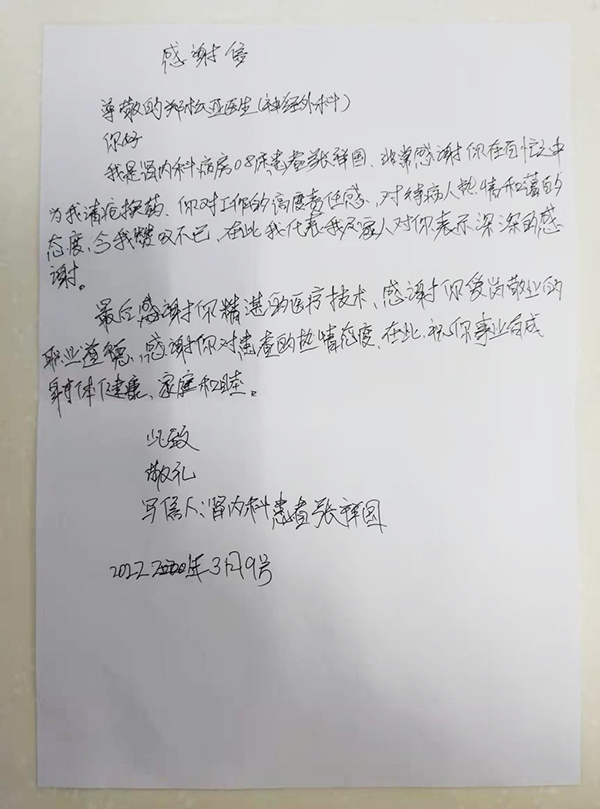 感谢信
尊敬的郑松亚医生(神经外科)
你好
我是肾内科病房08床患者张祥国、非常感谢你在百忙之中
为我清疮换药、你对工作的高度责任感、对待病人热情和蔼的
态度、令我赞叹不已、在此我代表我及家人对你表示深深的感
谢。
最后感谢你精湛的医疗技术、感谢你爱岗敬业的
职业道德、感谢你对患者的热情态度、在此、祝你事业有成
身体健康、家庭和睦。
此致
敬礼
写信人:肾内科患者张祥国
2022年3月9号